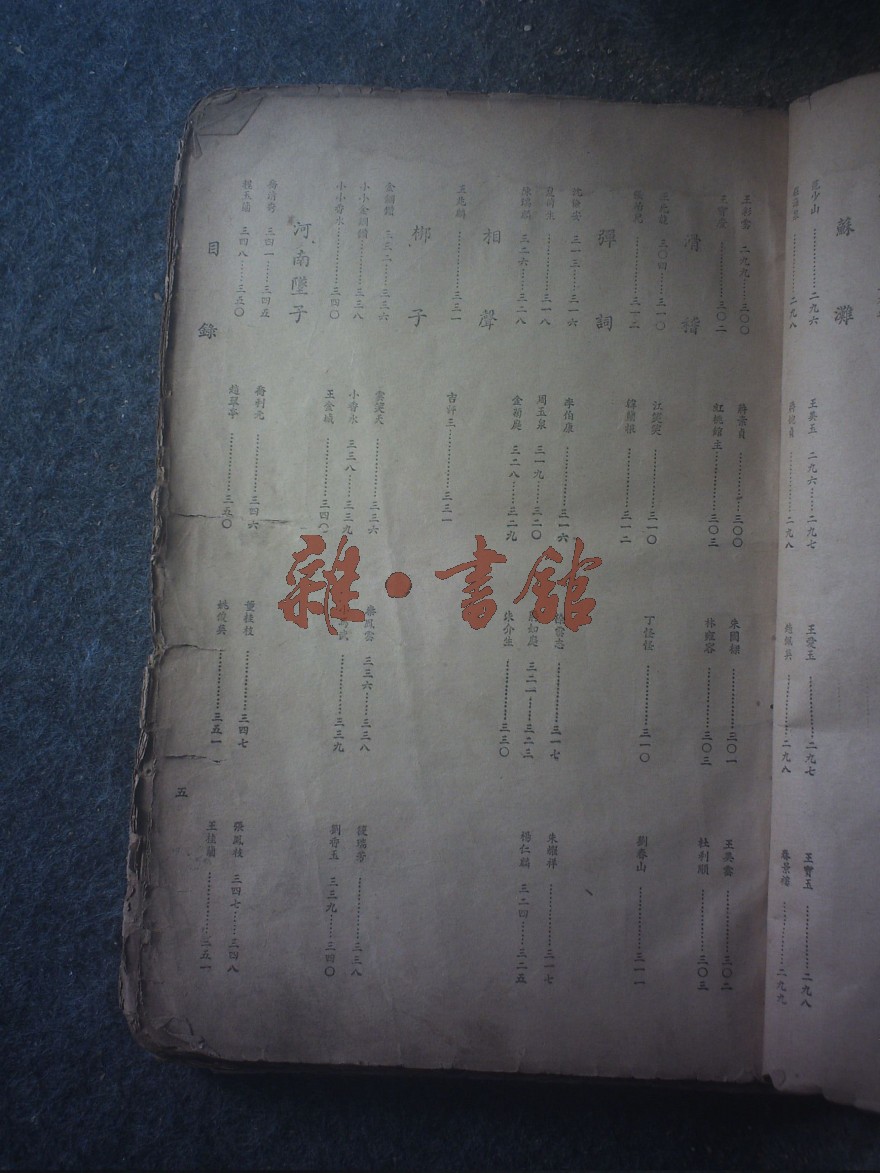 蘇灘
范少山……二九六
王美玉 二九六……二九七
王愛玉……二九七
王寶玉……二九八
二九八
蔣婉貞……二九八
二九八
二九九
王彩雲 二九九……三〇〇
蔣景貞……三〇〇
朱國樑……三〇一
王美雲……三〇二
王寶慶……三〇二
紅桃館主……三〇三
林雍容……三〇三
杜利順……三〇三
滑稽
王无能 三〇四……三一〇
江笑笑……三一〇
丁怪怪……三一〇
劉春山……三一一
張冶兒……三一二
韓蘭根……三一二
彈詞
沈儉安 三一三……三一六
李伯康……三一六
三一七
朱耀祥……三一七
夏荷生……三一八
周玉泉 三一九……三二〇
三二一……三二三
楊仁麟 三二四……三二五
朱瑞麟 三二六……三二八
金筱庭 三二八……三二九
朱介生……三三〇
相聲
王兆麟……三三一
吉評三……三三一
梆子
金鋼鑽 三三二……三三六
雲笑天……三三六
秦鳳雲 三三六……三三八
陳瑞芳……三三八
小小金鋼鑽……三三八
小香水 三三八……三三九
三三九
劉香玉 三三九……三四〇
小小香水……三四〇
王金城……三四〇
河南墜子
喬清秀 三四一……三四五
喬利元……三四六
董桂枝……三四七
張鳳枝 三四七……三四八
程玉蘭 三四八……三五〇
趙翠亭……三五〇
姚俊英……三五一
王桂蘭……三五一
目錄
五
雜·書館